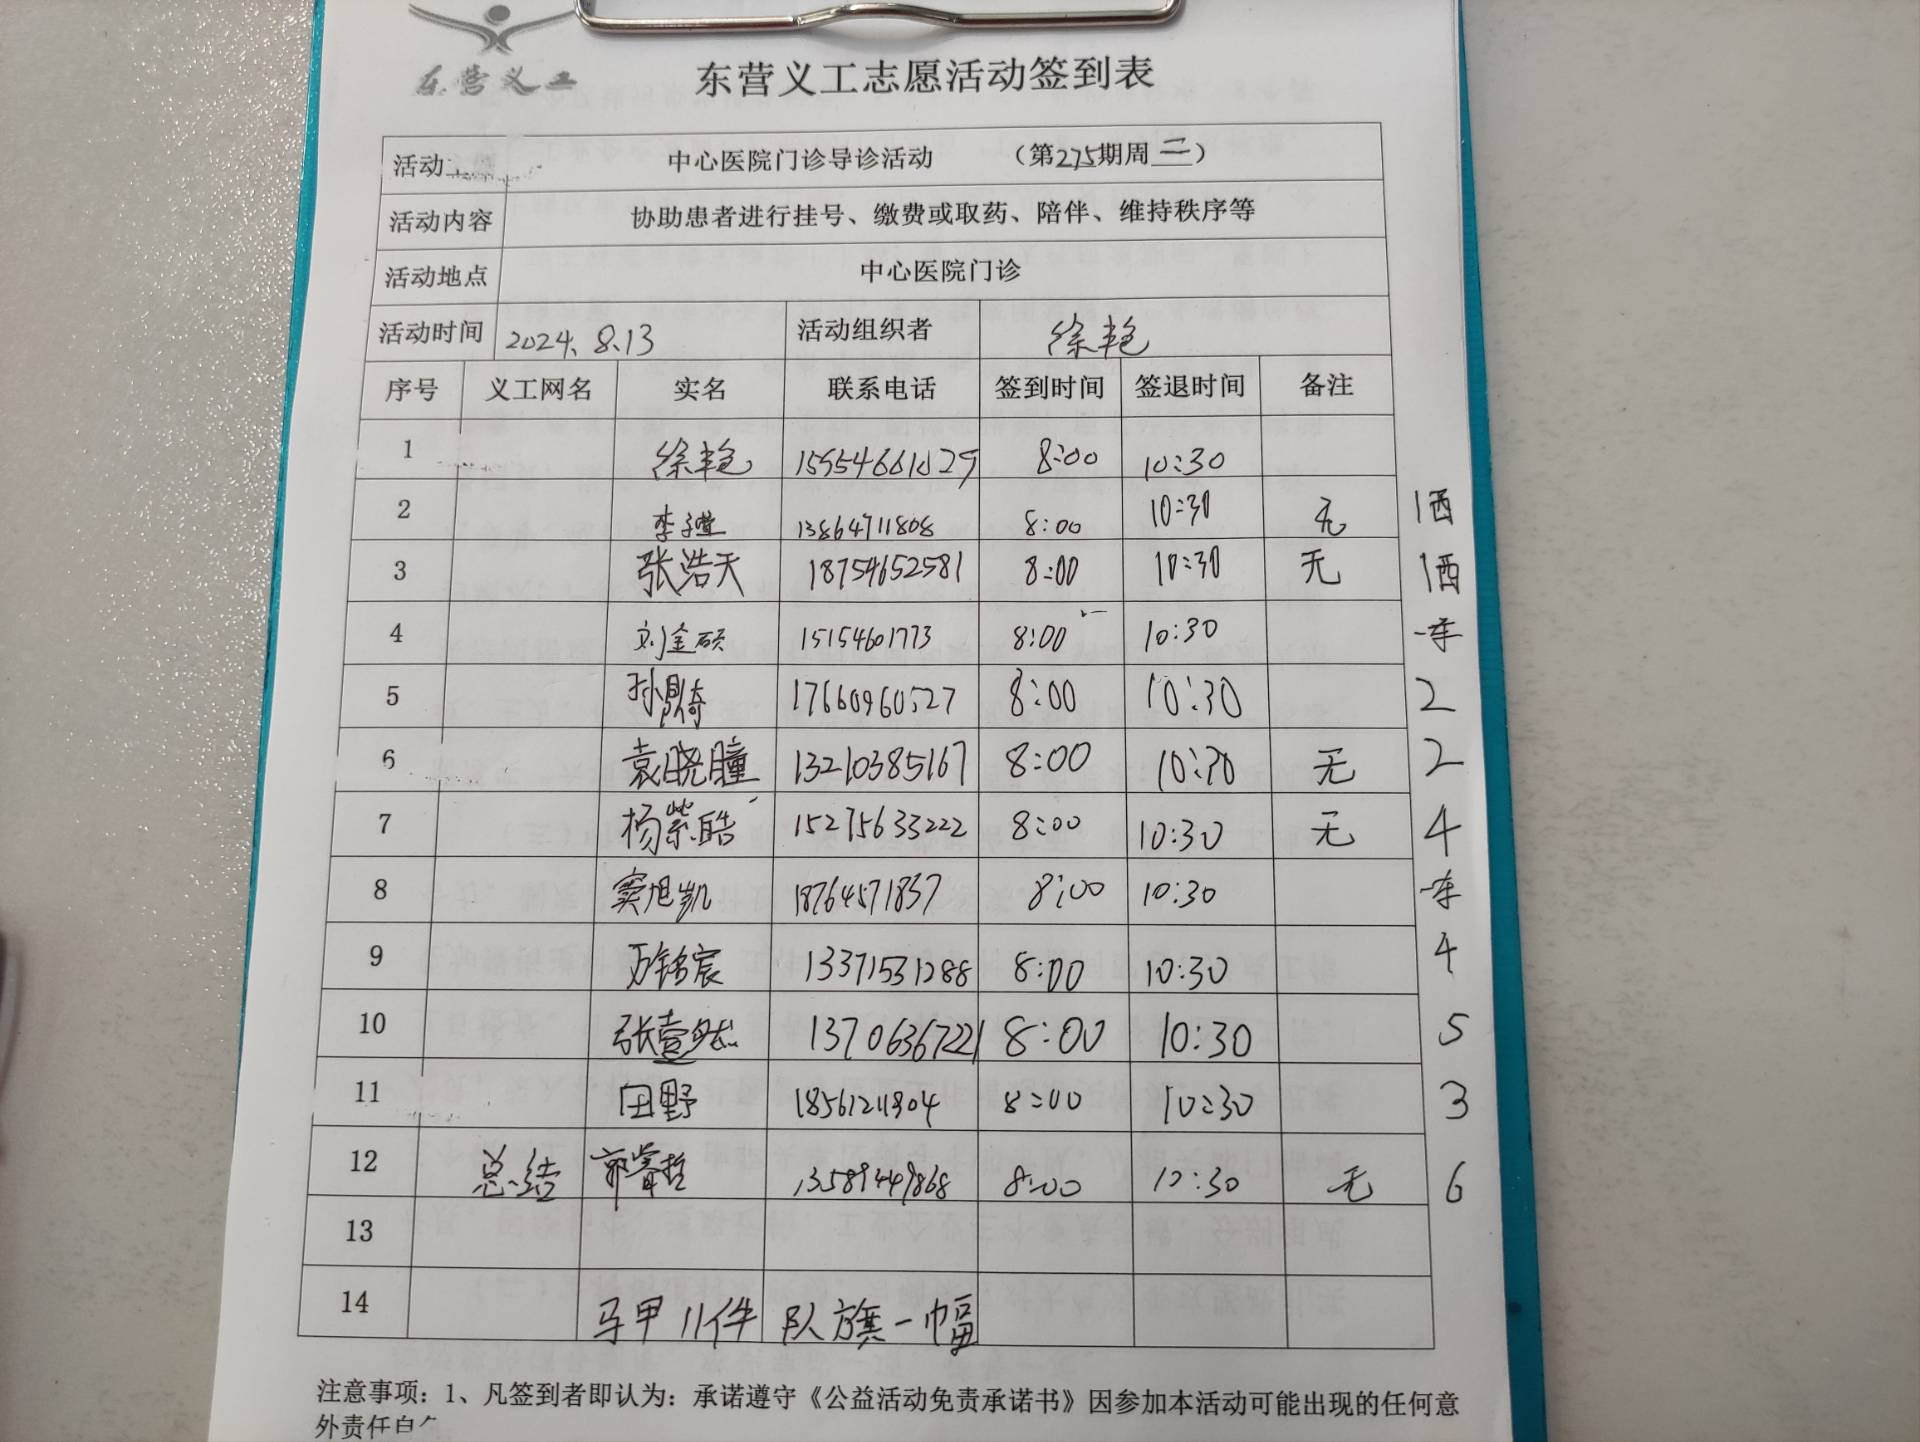 东营义工
东营义工志愿活动签到表
活动 中心医院门诊导诊活动 （第275期周二）
活动内容 协助患者进行挂号、缴费或取药、陪伴、维持秩序等
活动地点 中心医院门诊
活动时间 2024.8.13 活动组织者 徐艳
序号 义工网名 实名 联系电话 签到时间 签退时间 备注
1 徐艳 8:00 10:30
2 13864711808 8:00 10:30 无 1西
3 张浩天 18754652581 8:00 10:30 无 1西
4 刘金硕 15154601773 8:00 10:30 一东
5 17660960527 8:00 10:30 2
6 袁晓瞳 13210385167 8:00 10:30 无 2
7 杨紫皓 15275633222 8:00 10:30 无 4
8 窦旭凯 18764571837 8:00 10:30 一东
9 万铭宸 13371531288 8:00 10:30 4
10 张壹然 13706367221 8:00 10:30 5
11 田野 18561211304 8:00 10:30 3
12 总结 郭睿哲 13589449868 8:00 10:30 无 6
13
14 马甲11件 队旗一幅
注意事项：1、凡签到者即认为：承诺遵守《公益活动免责承诺书》因参加本活动可能出现的任何意
外责任自